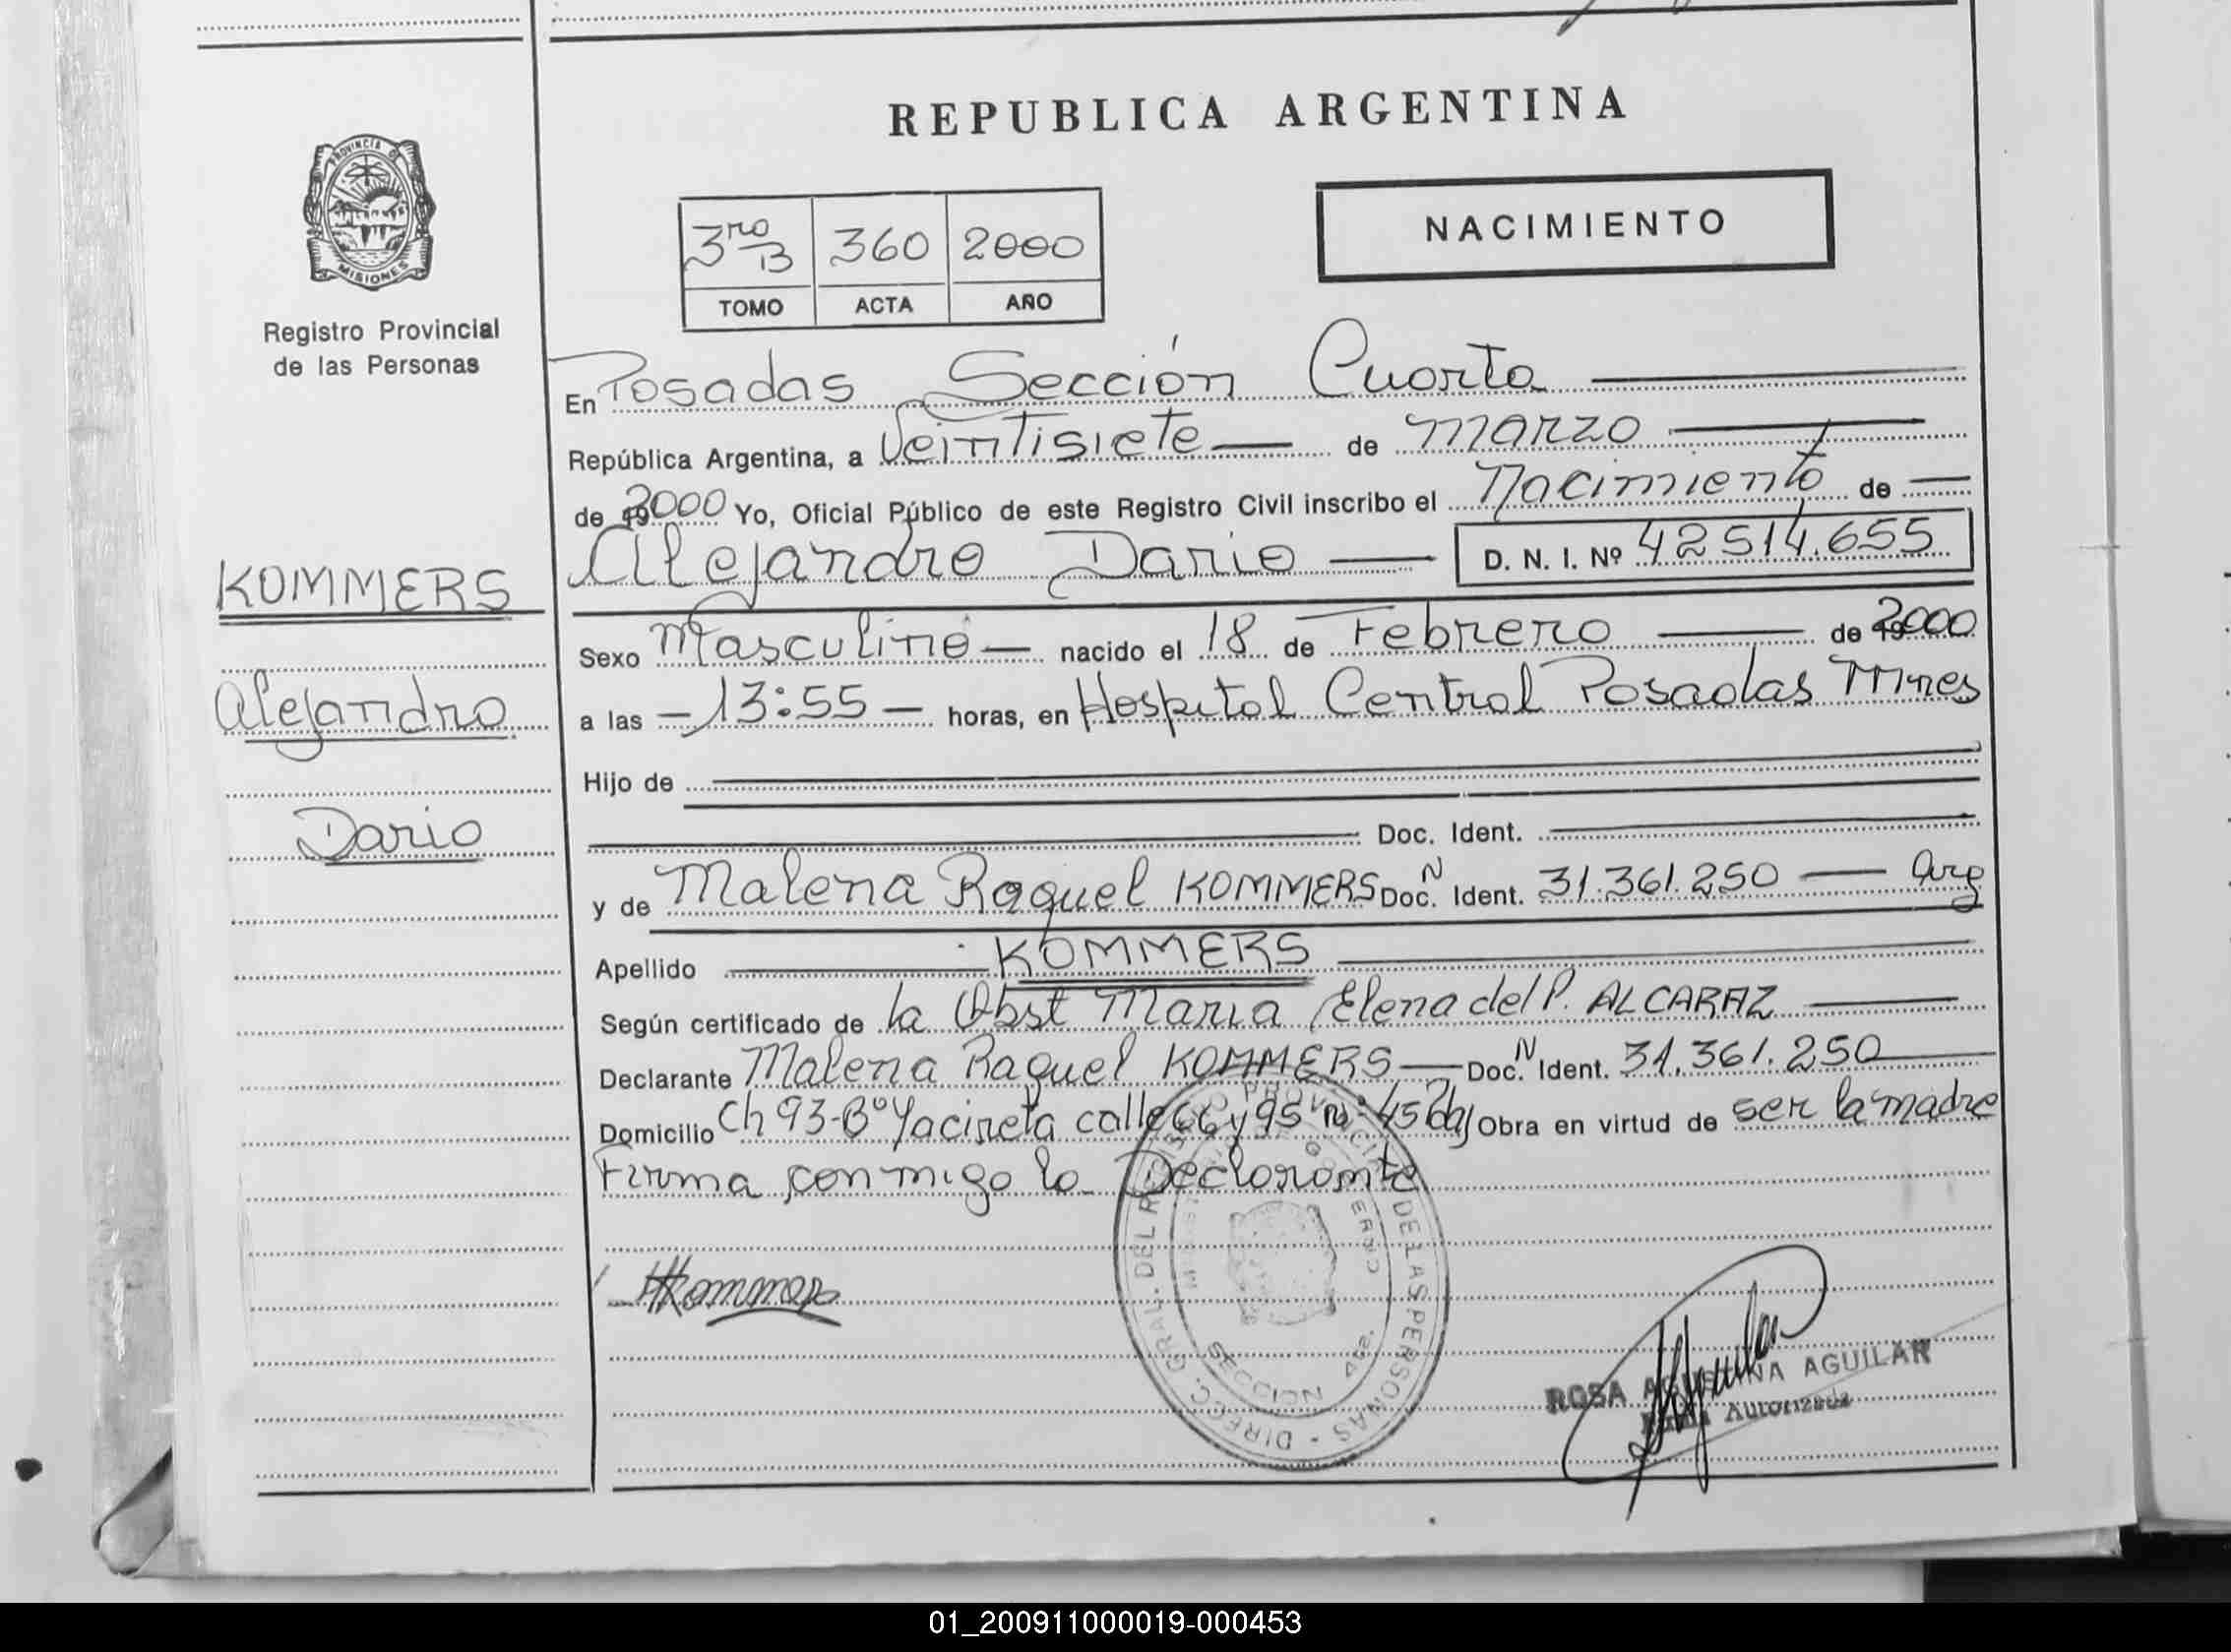 REPUBLICA ARGENTINA
PROVINCIA DE
MISIONES
Registro Provincial
de las Personas
3ro B 360 2000
TOMO ACTA AÑO
NACIMIENTO
En Posadas Sección Cuarta
República Argentina, a Veintisiete de Marzo
de 2000 Yo, Oficial Público de este Registro Civil inscribo el Nacimiento de
Alejandro Dario D. N. I. Nº 42514.655
KOMMERS
Alejandro
Dario
Sexo Masculino nacido el 18 de Febrero de 2000
a las 13:55 horas, en Hospital Central Posadas Mnes
Hijo de
Doc. Ident.
y de Malena Raquel KOMMERS Doc. N Ident. 31.361.250 Arg
Apellido KOMMERS
Según certificado de la Obst Maria Elena del P. ALCARAZ
Declarante Malena Raquel KOMMERS Doc. N Ident. 31.361.250
Domicilio Ch 93-Bº Yacireta calle 66 y 95 nº 45 Obra en virtud de ser la madre
Firma conmigo la Declarante
Kommers
DIRECC. GRAL. DEL REGISTRO PROVINCIAL DE LAS PERSONAS
ROSA AGUSTINA AGUILAR
Firma Autorizada
01_200911000019-000453